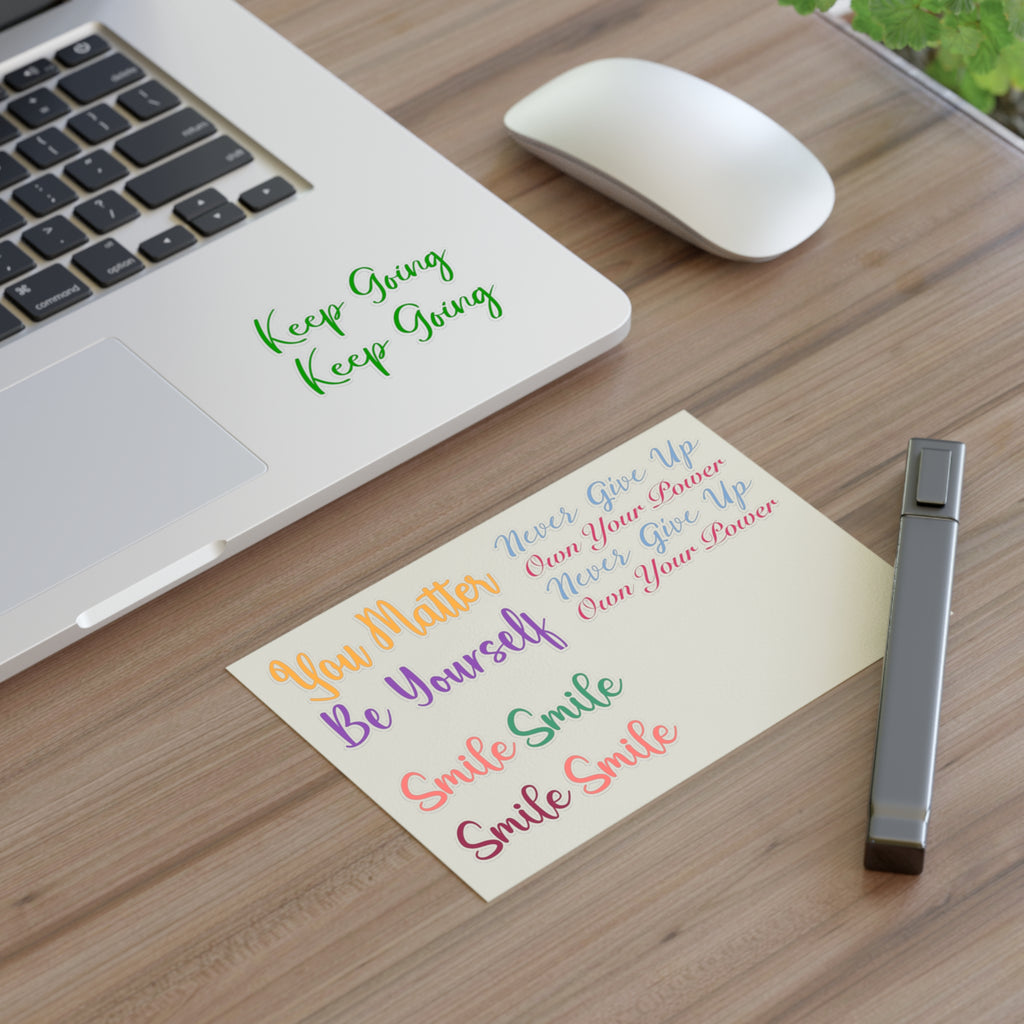 delete
return
shift
option
⌘
command
Keep Going
Keep Going
Never Give Up
Own Your Power
Never Give Up
Own Your Power
You Matter
Be Yourself
Smile Smile
Smile Smile